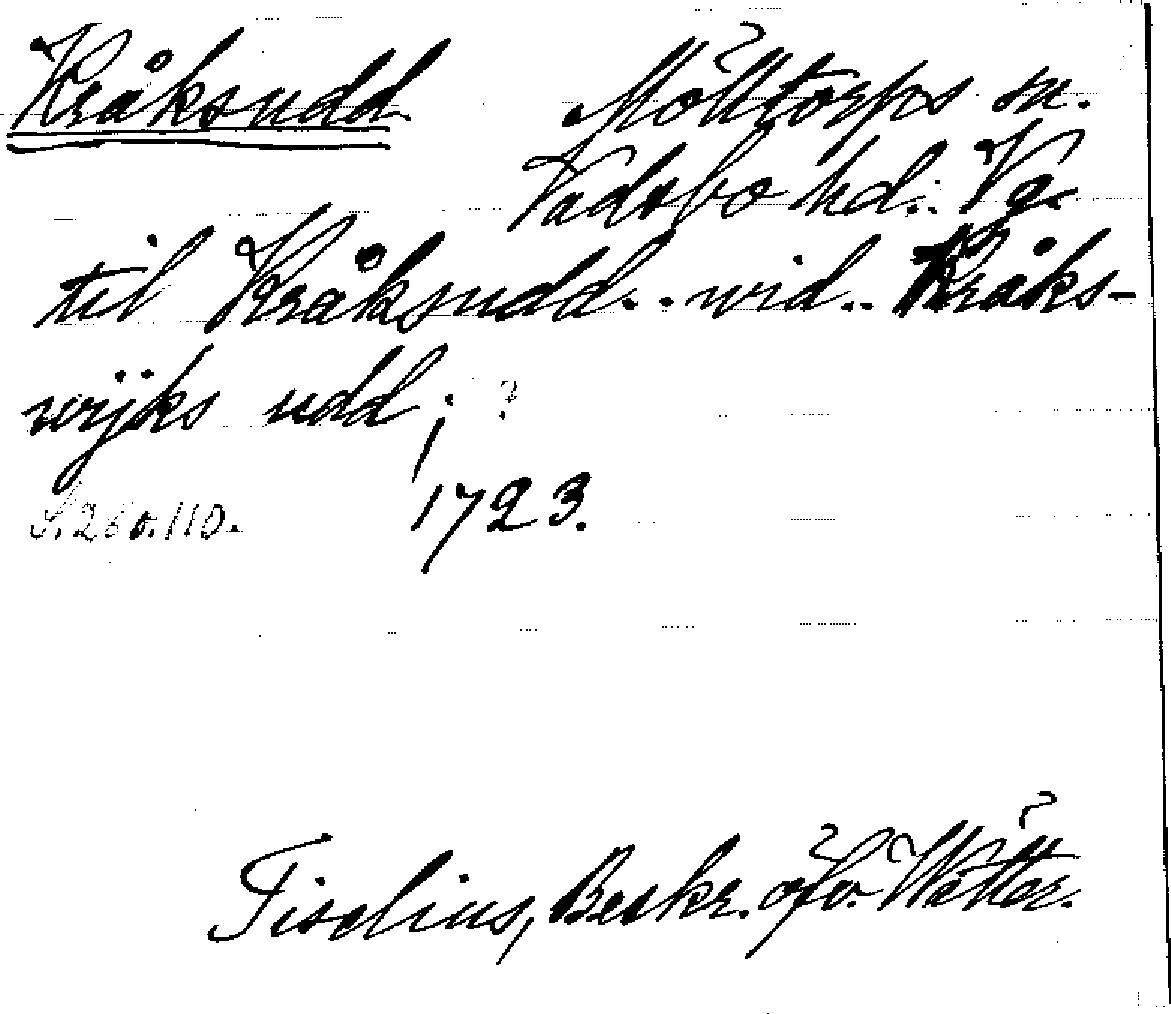 Kråksudd Mölltorps sn.
Vadsbo hd. Vg.
til Kråksudd.. wid.. Kråks-
wijks udd; ?
S. 260.110. 1723.
Tiselius, Beskr. öfv. Wätter.